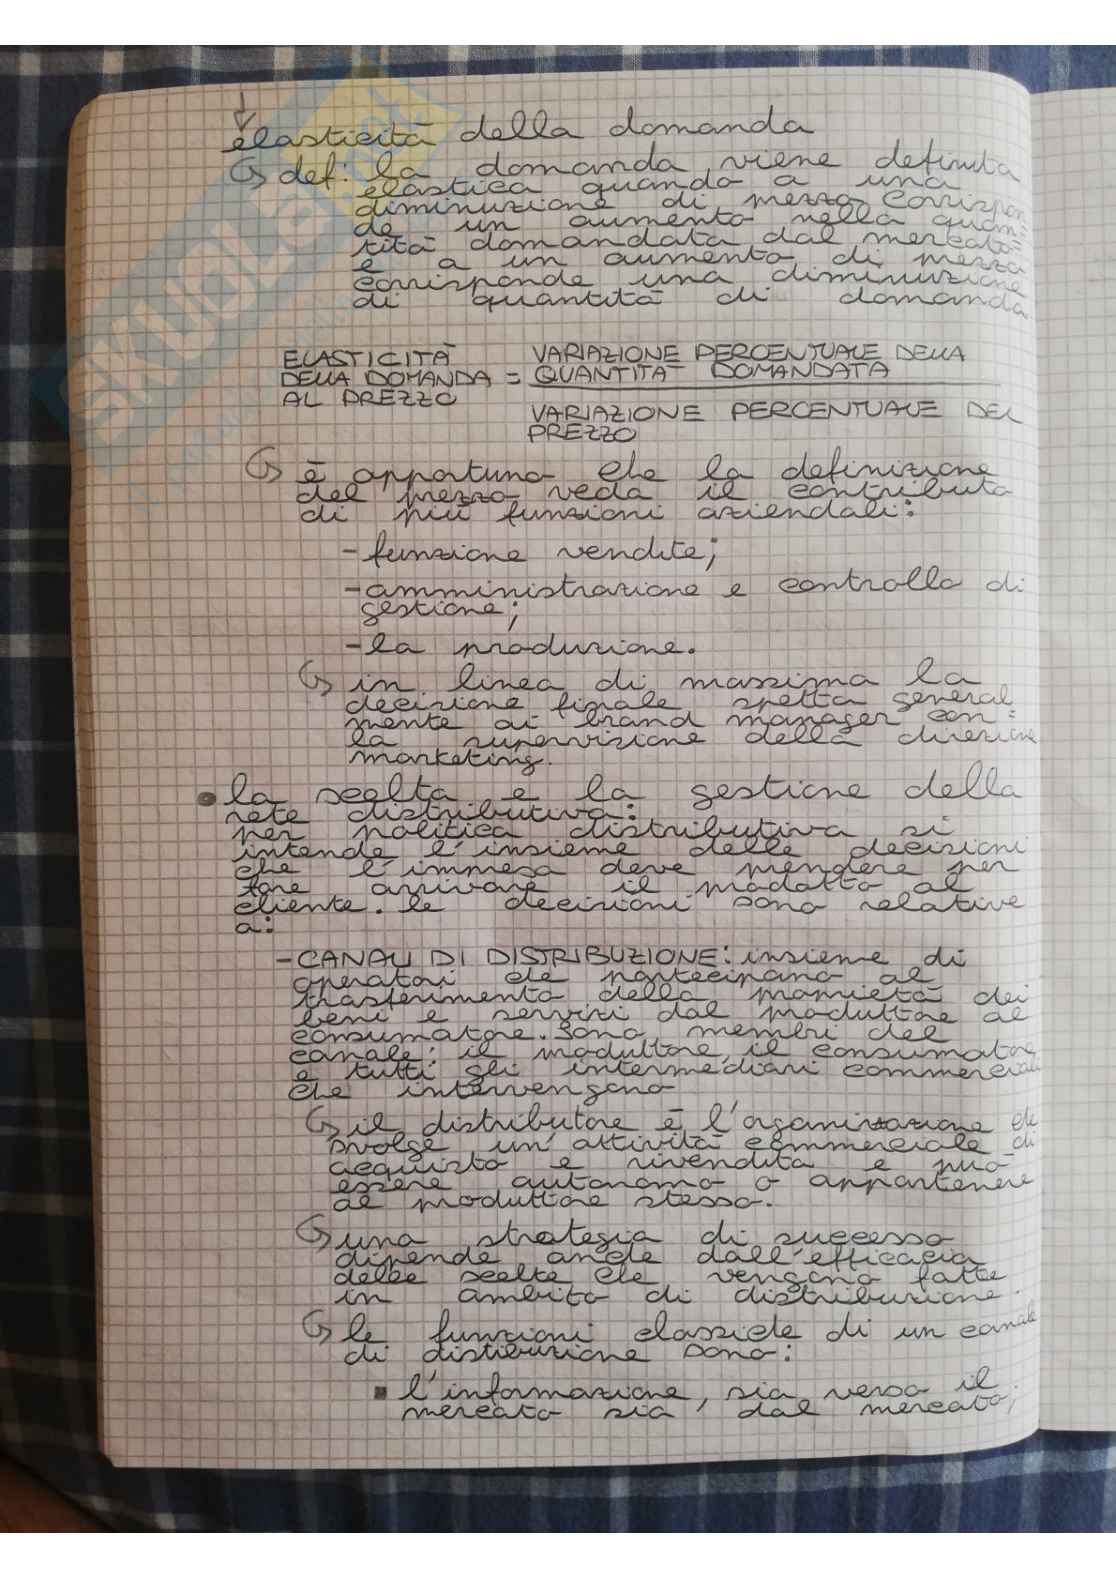 elasticità della domanda
def: la domanda viene definita
elastica quando a una
diminuzione di prezzo corrispon
de un aumento nella quan=
tità domandata dal mercato
e a un aumento di prezzo
corrisponde una diminuzione
di quantità di domanda
ELASTICITÀ
DELLA DOMANDA =
AL PREZZO
VARIAZIONE PERCENTUALE DELLA
QUANTITÀ DOMANDATA
VARIAZIONE PERCENTUALE DEL
PREZZO
è opportuno che la definizione
del prezzo veda il contributo
di più funzioni aziendali:
- funzione vendite;
- amministrazione e controllo di
gestione;
- la produzione.
in linea di massima la
decisione finale spetta general
mente ai brand manager con=
la supervisione della direzione
marketing.
• la scelta e la gestione della
rete distributiva:
per politica distributiva si
intende l'insieme delle decisioni
che l'impresa deve prendere per
fare arrivare il prodotto al
cliente. le decisioni sono relative
a:
- CANALI DI DISTRIBUZIONE: insieme di
operatori che partecipano al
trasferimento della proprietà dei
beni e servizi dal produttore al
consumatore. Sono membri del
canale: il produttore, il consumatore
e tutti gli intermediari commerciali
che intervengono
il distributore è l'organizzazione che
svolge un'attività commerciale di
acquisto e rivendita e può
essere autonomo o appartenere
al produttore stesso.
una strategia di successo
dipende anche dall'efficacia
delle scelte che vengono fatte
in ambito di distribuzione.
le funzioni classiche di un canale
di distibuzione sono:
▪ l'informazione, sia verso il
mercato sia dal mercato;